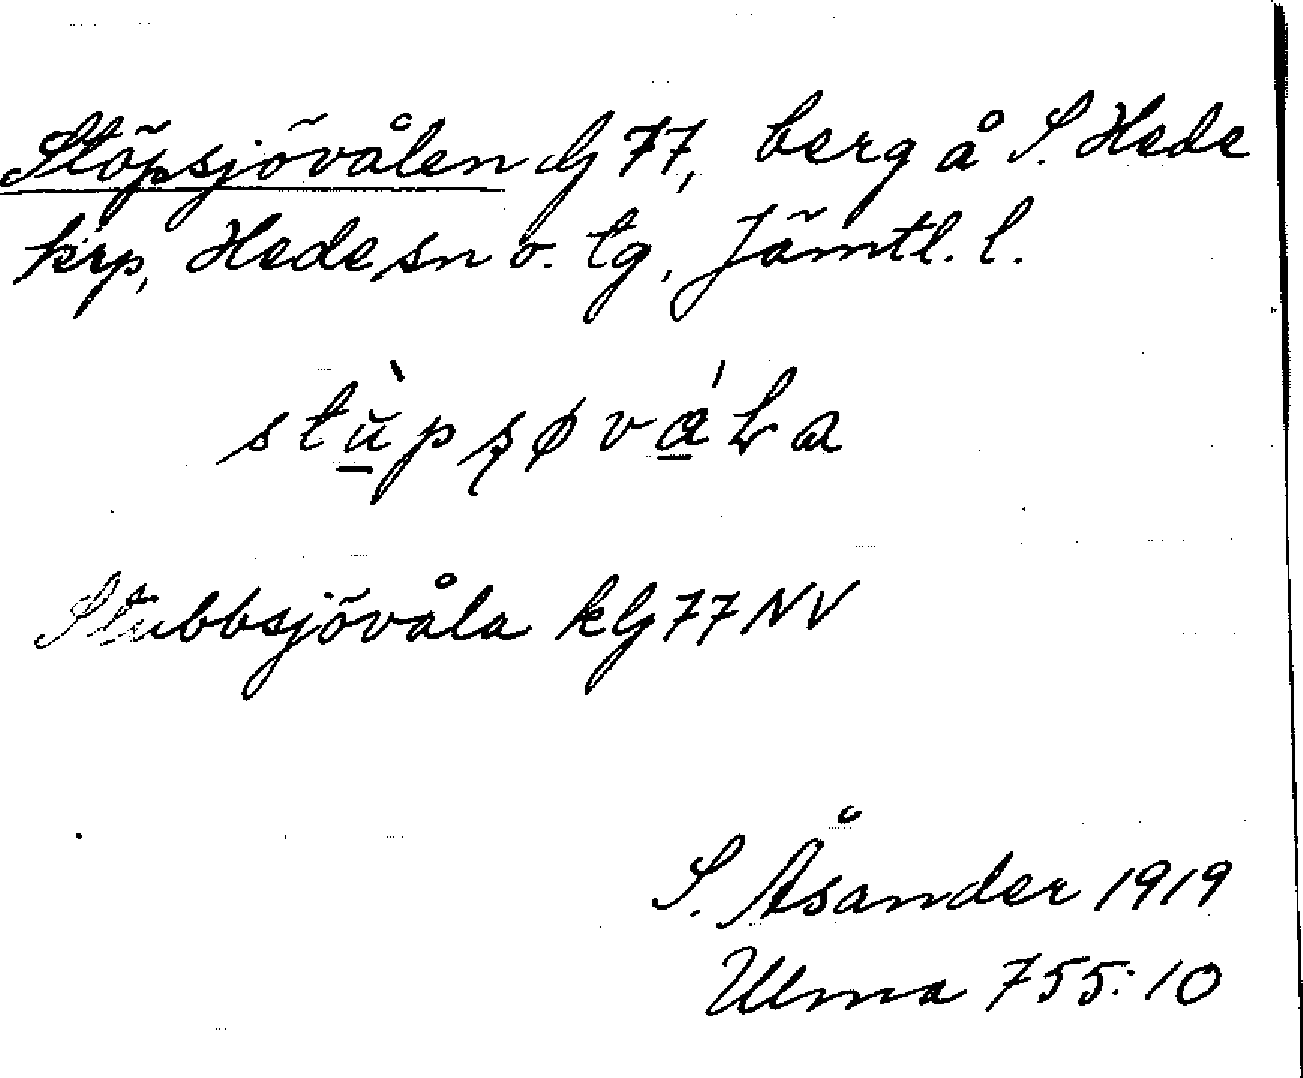 Stöpsjövålen G 77, berg å S. Hede
krp, Hede sn o. tg, Jämtl. l.
stù̲pşøvá̲La
Stubbsjövåla kG 77 NV
S. Åsander 1919
Ulma 755:10